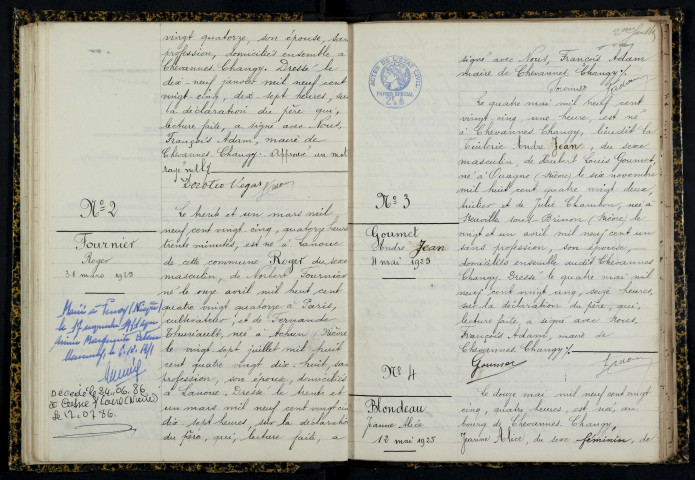 vingt quatorze, son épouse, sans
profession, domiciliés ensemble à
Chevannes Changy. Dressé le
dix neuf janvier mil neuf cent
vingt cinq, dix sept heures, sur
la déclaration du père qui,
lecture faite, a signé avec Nous,
François Adam, maire de
Chevannes Changy. Approuvé un mot
rayé nul
Dorotéo Vegas
No 2
Fournier
Roger
31 mars 1925
Marié à
le 17 1961
Marguerite
Décédé le 24.06.86
à Cosne s/ Loire (Nièvre)
le 17.07.86.
Le trente et un mars mil
neuf cent vingt cinq, quatorze heures
trente minutes, est né à Lanoue
de cette commune Roger du sexe
masculin, de Norbert Fournier
né le onze avril mil huit cent
quatre vingt quatorze à Paris,
cultivateur, et de Fernande
Theuriault, née à Achun, Nièvre
le vingt sept juillet mil huit
cent quatre vingt dix huit, sans
profession, son épouse, domiciliés
à Lanoue. Dressé le trente et
un mars mil neuf cent vingt cinq
dix sept heures, sur la déclaration
du père, qui, lecture faite, a
ACTES DE L'ETAT CIVIL
PAPIER SPECIAL
signé avec Nous, François Adam
maire de Chevannes Changy.
Fournier
No 3
Goumet
André Jean
4 mai 1925
Le quatre mai mil neuf cent
vingt cinq, une heure, est né
à Chevannes Changy, lieudit la
Tuilerie André Jean, du sexe
masculin, de Louis Goumet,
né à Ouagne (Nièvre) le six novembre
mil huit cent quatre vingt deux,
tuilier et de Julie Chambon, née à
Neuville sous Brinon (Nièvre) le
vingt et un avril mil neuf cent un
sans profession, son épouse,
domiciliés ensemble audit Chevannes
Changy. Dressé le quatre mai mil
neuf cent vingt cinq, seize heures,
sur la déclaration du père, qui,
lecture faite, a signé avec Nous,
François Adam, maire de
Chevannes Changy.
Goumet
No 4
Blondeau
Jeanne Alice
12 mai 1925
Le douze mai mil neuf cent vingt
cinq, quatre heures, est née, au
bourg de Chevannes Changy,
Jeanne Alice, du sexe féminin, de